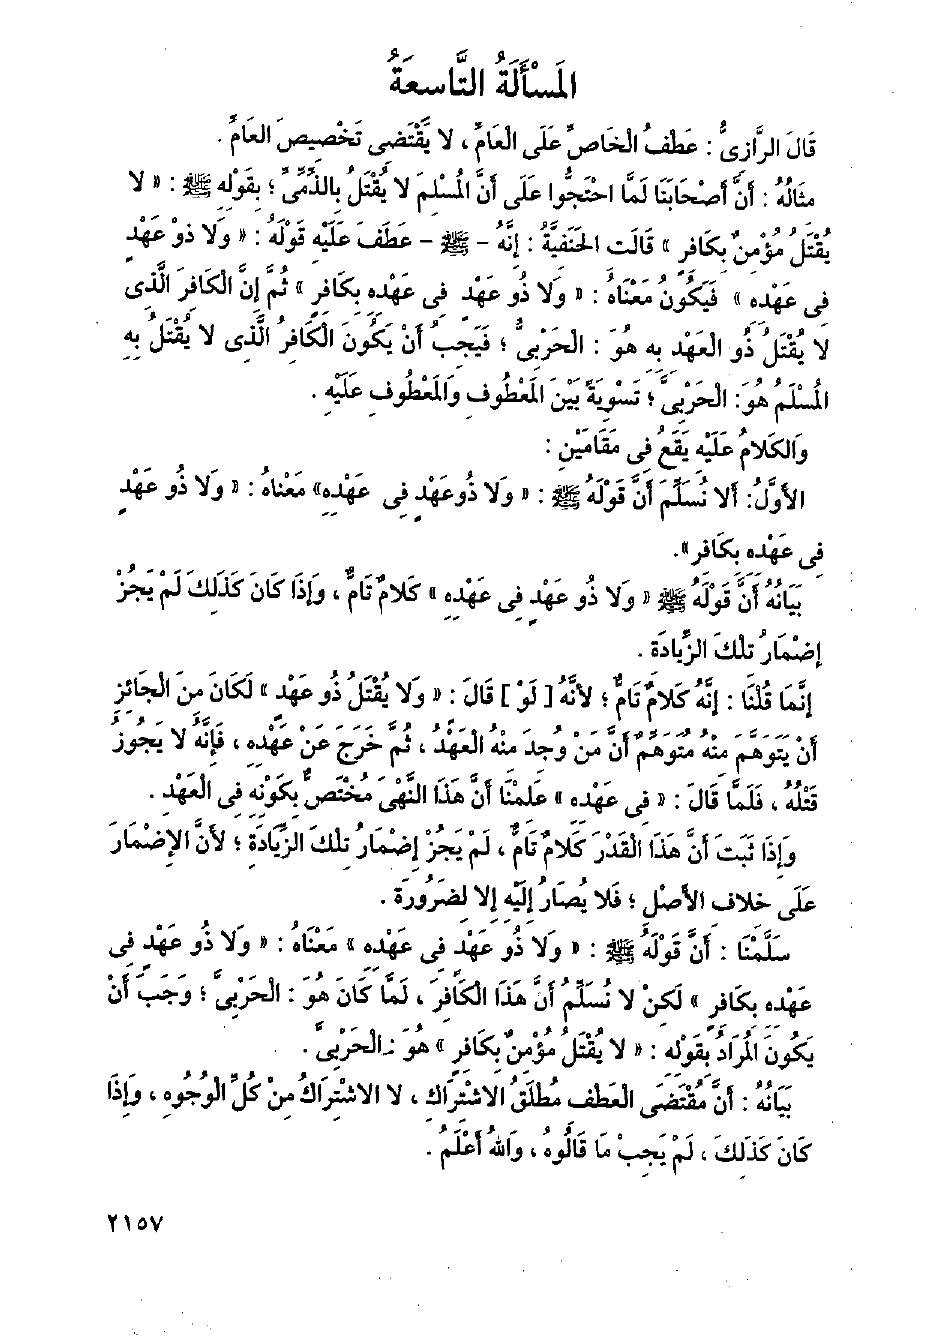 المَسْأَلَةُ التَّاسِعَةُ
قَالَ الرَّازِىُّ : عَطْفُ الْخَاصِّ عَلَى الْعَامِّ ، لا يَقْتَضِى تَخْصِيصَ العَامِّ .
مِثَالُهُ : أَنَّ أَصْحَابَنَا لَمَّا احْتَجُّوا عَلَى أَنَّ الْمُسْلِمَ لا يُقْتَلُ بِالذِّمِّىِّ ؛ بِقَوْلِهِ ﷺ : « لا
يُقْتَلُ مُؤْمِنٌ بِكَافِرٍ » قَالَتِ الحَنَفِيَّةُ : إِنَّهُ - ﷺ - عَطَفَ عَلَيْهِ قَوْلَهُ : « وَلا ذوْ عَهْدٍ
فِى عَهْدِهِ » فَيَكُونُ مَعْنَاهُ : « وَلا ذُو عَهْدٍ فِى عَهْدِهِ بِكَافِرٍ » ثُمَّ إِنَّ الْكَافِرَ الَّذِى
لا يُقْتَلُ ذُو العَهْدِ بِهِ هُوَ : الْحَرْبِىُّ ؛ فَيَجِبُ أَنْ يَكُونَ الْكَافِرُ الَّذِى لا يُقْتَلُ بِهِ
الْمُسْلِمُ هُوَ: الْحَرْبِىَّ ؛ تَسْوِيَةً بَيْنَ الْمَعْطُوفِ وَالمَعْطُوفِ عَلَيْهِ .
وَالكَلامُ عَلَيْهِ يَقَعُ فِى مَقَامَيْنِ :
الأَوَّلُ: أَلا نُسَلِّمَ أَنَّ قَوْلَهُ ﷺ : « وَلا ذُوعَهْدٍ فِى عَهْدِهِ» مَعْنَاهُ : « وَلا ذُو عَهْدٍ
فِى عَهْدِهِ بِكَافِرٍ ».
بَيَانُهُ أَنَّ قَوْلَهُ ﷺ « وَلا ذُو عَهْدٍ فِى عَهْدِهِ » كَلامٌ تَامٌّ ، وَإِذَا كَانَ كَذَلِكَ لَمْ يَجُزْ
إِضْمَارُ تِلْكَ الزِّيَادَةِ .
إِنَّمَا قُلْنَا : إِنَّهُ كَلامٌ تَامٌّ ؛ لأنَّهُ [ لَوْ ] قَالَ : « وَلا يُقْتَلُ ذُو عَهْدٍ » لَكَانَ مِنَ الْجَائِزِ
أَنْ يَتَوَهَّمَ مِنْهُ مُتَوَهِّمٌ أَنَّ مَنْ وُجِدَ مِنْهُ الْعَهْدُ ، ثُمَّ خَرَجَ عَنْ عَهْدِهِ ، فَإِنَّهُ لا يَجُوزُ
قَتْلُهُ ، فَلَمَّا قَالَ : « فِى عَهْدِهِ » عَلِمْنَا أَنَّ هَذَا النَّهْىَ مُخْتَصٌّ بِكَوْنِهِ فِى الْعَهْدِ .
وَإِذَا ثَبَتَ أَنَّ هَذَا الْقَدْرَ كَلامٌ تَامٌّ ، لَمْ يَجُزْ إِضْمَارُ تِلْكَ الزِّيَادَةِ ؛ لأَنَّ الإِضْمَارَ
عَلَى خِلافِ الأَصْلِ ؛ فَلا يُصَارُ إِلَيْهِ إِلا لِضَرُورَةٍ .
سَلَّمْنَا : أَنَّ قَوْلَهُ ﷺ : « وَلا ذُو عَهْدٍ فِى عَهْدِهِ » مَعْنَاهُ : « وَلا ذُو عَهْدٍ فِى
عَهْدِهِ بِكَافِرٍ » لَكِنْ لا نُسَلِّمُ أَنَّ هَذَا الْكَافِرَ ، لَمَّا كَانَ هُوَ : الْحَرْبِىَّ ؛ وَجَبَ أَنْ
يَكُونَ الْمُرَادُ بِقَوْلِهِ : « لا يُقْتَلُ مُؤْمِنٌ بِكَافِرٍ » هُوَ : الْحَرْبِىَّ .
بَيَانُهُ : أَنَّ مُقْتَضَى الْعَطْفِ مُطْلَقُ الاشْتِرَاكِ ، لا الاشْتِرَاكُ مِنْ كُلِّ الْوُجُوهِ ، وَإِذَا
كَانَ كَذَلِكَ ، لَمْ يَجِبْ مَا قَالُوهُ ، وَاللهُ أَعْلَمُ .
٢١٥٧